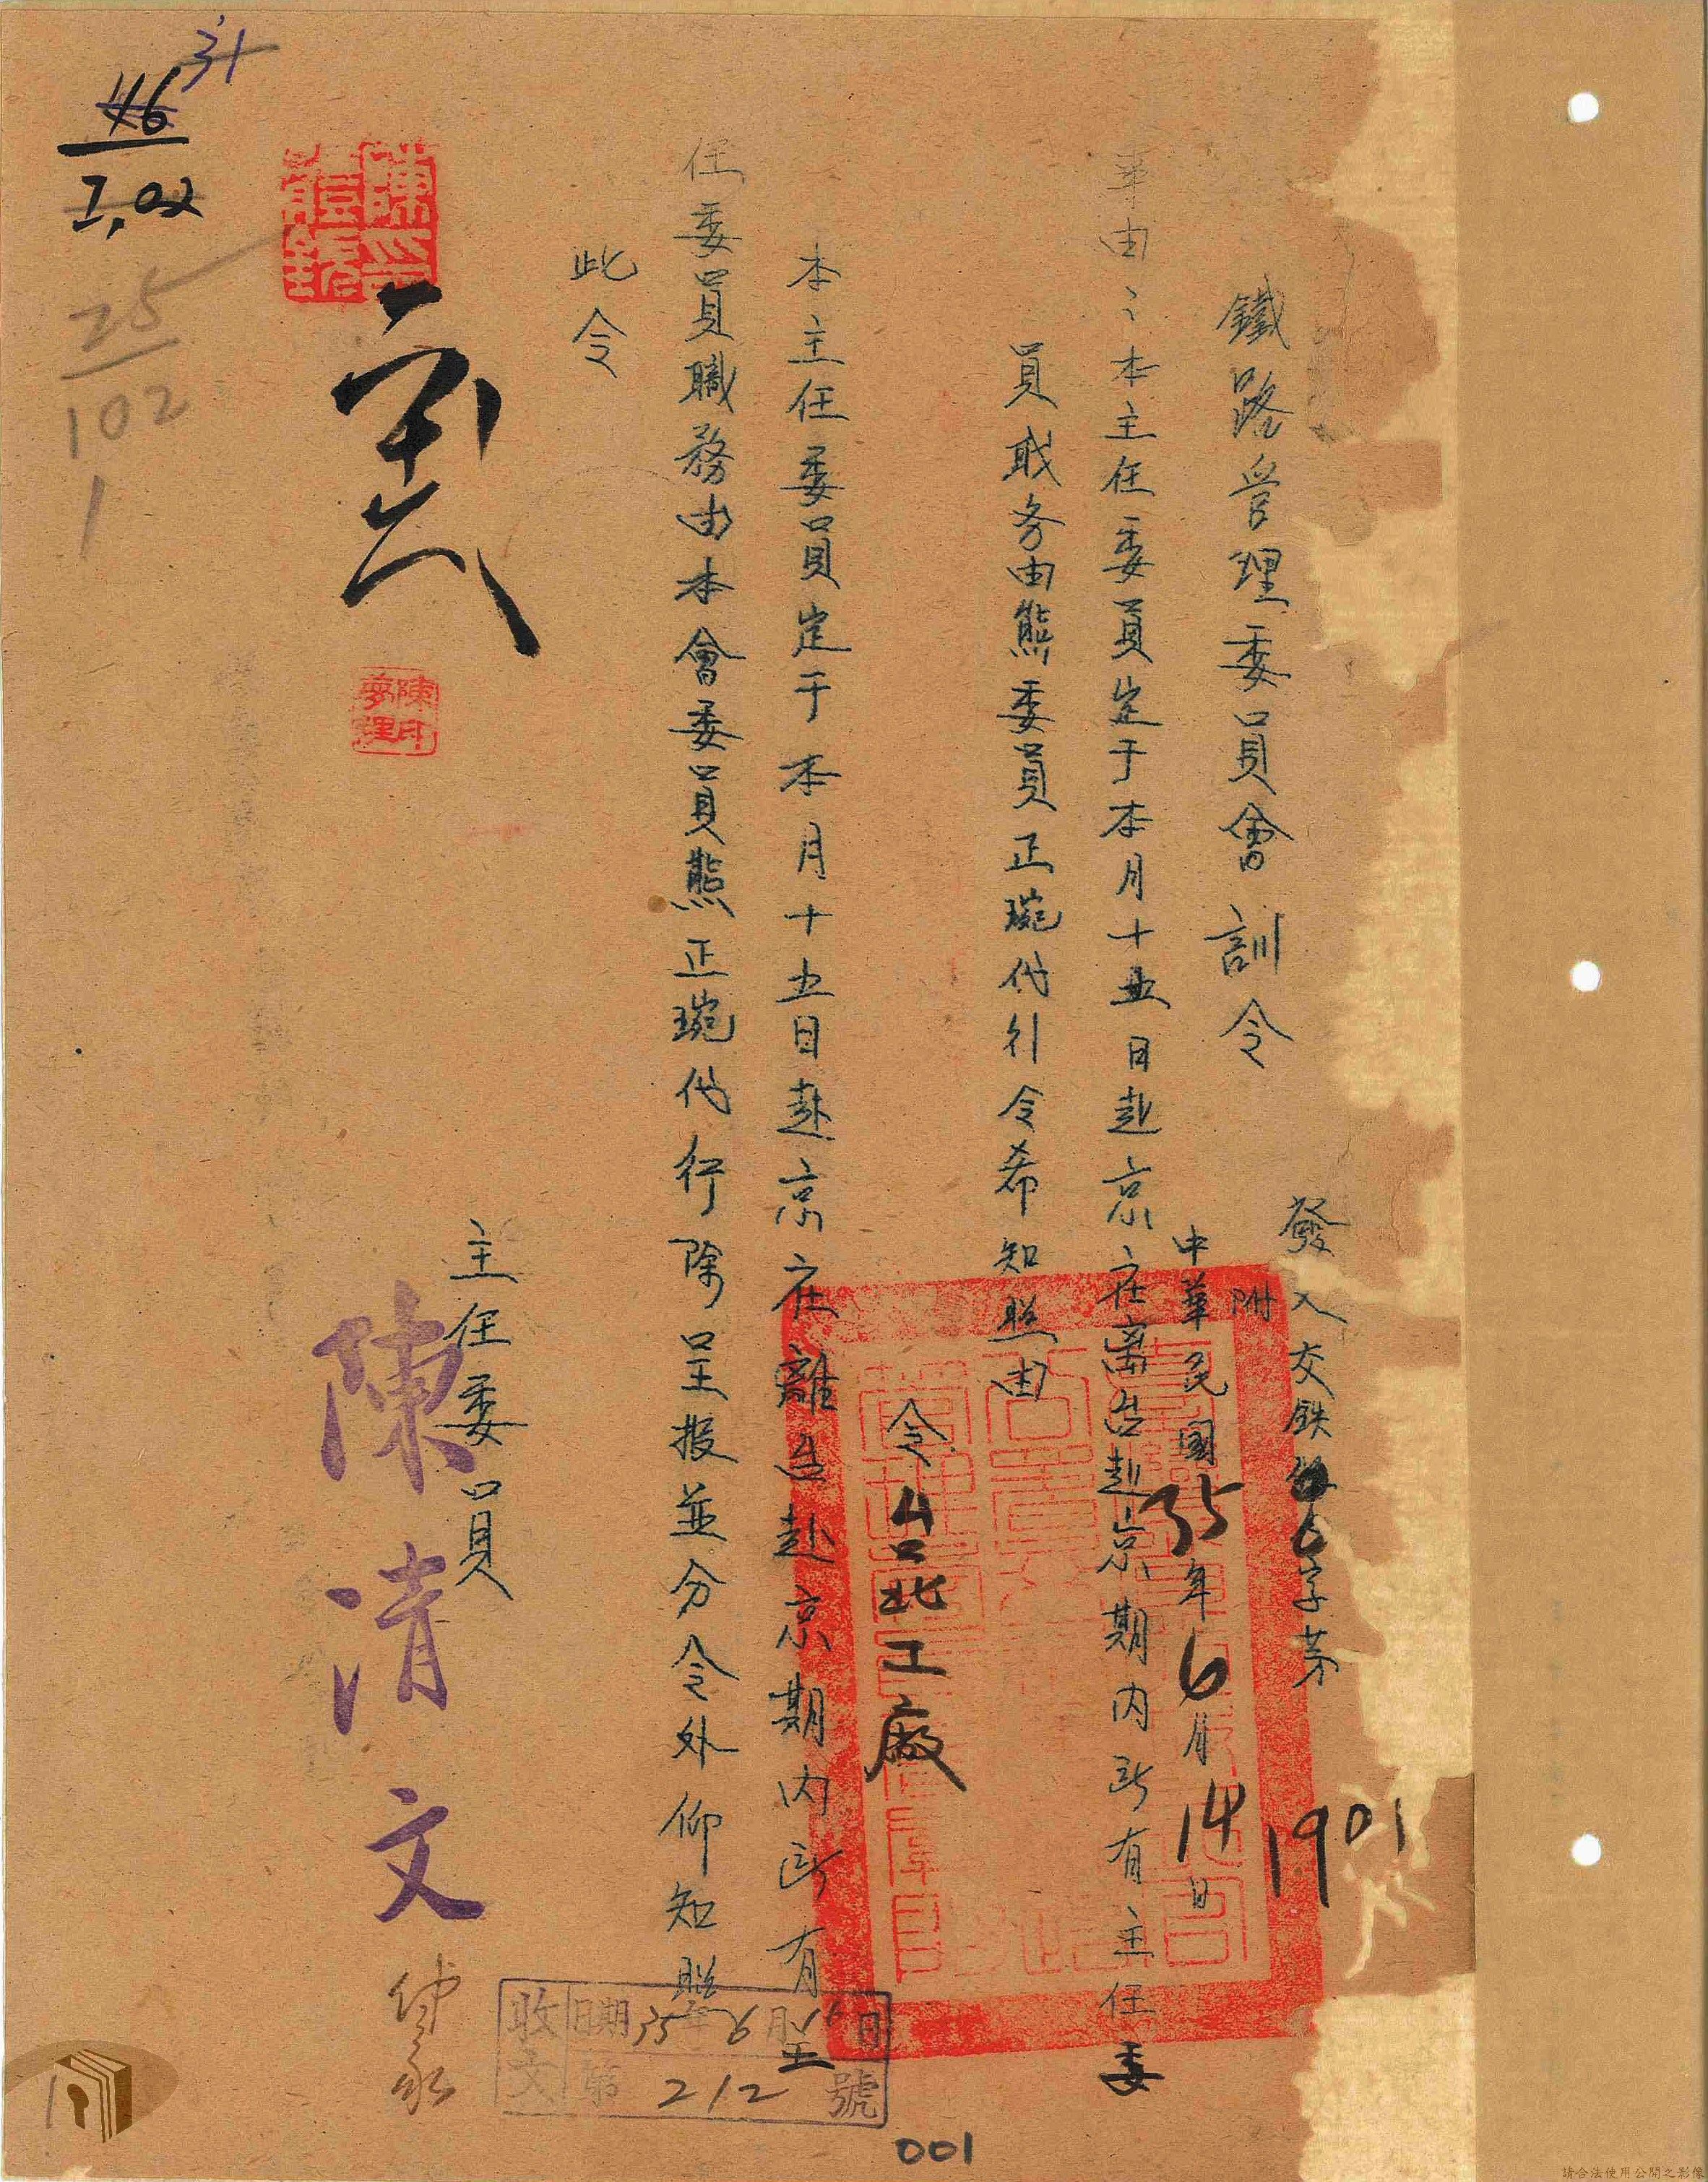 鐵路管理委員會訓令
發文交鉄
字第1901
附
中華民國35年6月14日
事由：本主任委員定于本月十五日赴京在离台赴京期内所有主任委
員職务由熊委員正琬代行令希知照由
令台北工廠
本主任委員定于本月十五日赴京在離台赴京期内所有主
任委員職務由本會委員熊正琬代行除呈报並分令外仰知照
此令
主任委員
陳清文
陳印
收文
日期35年6月15日
第212號
31
46
I,02
25
102
1
001
請合法使用公開之影像